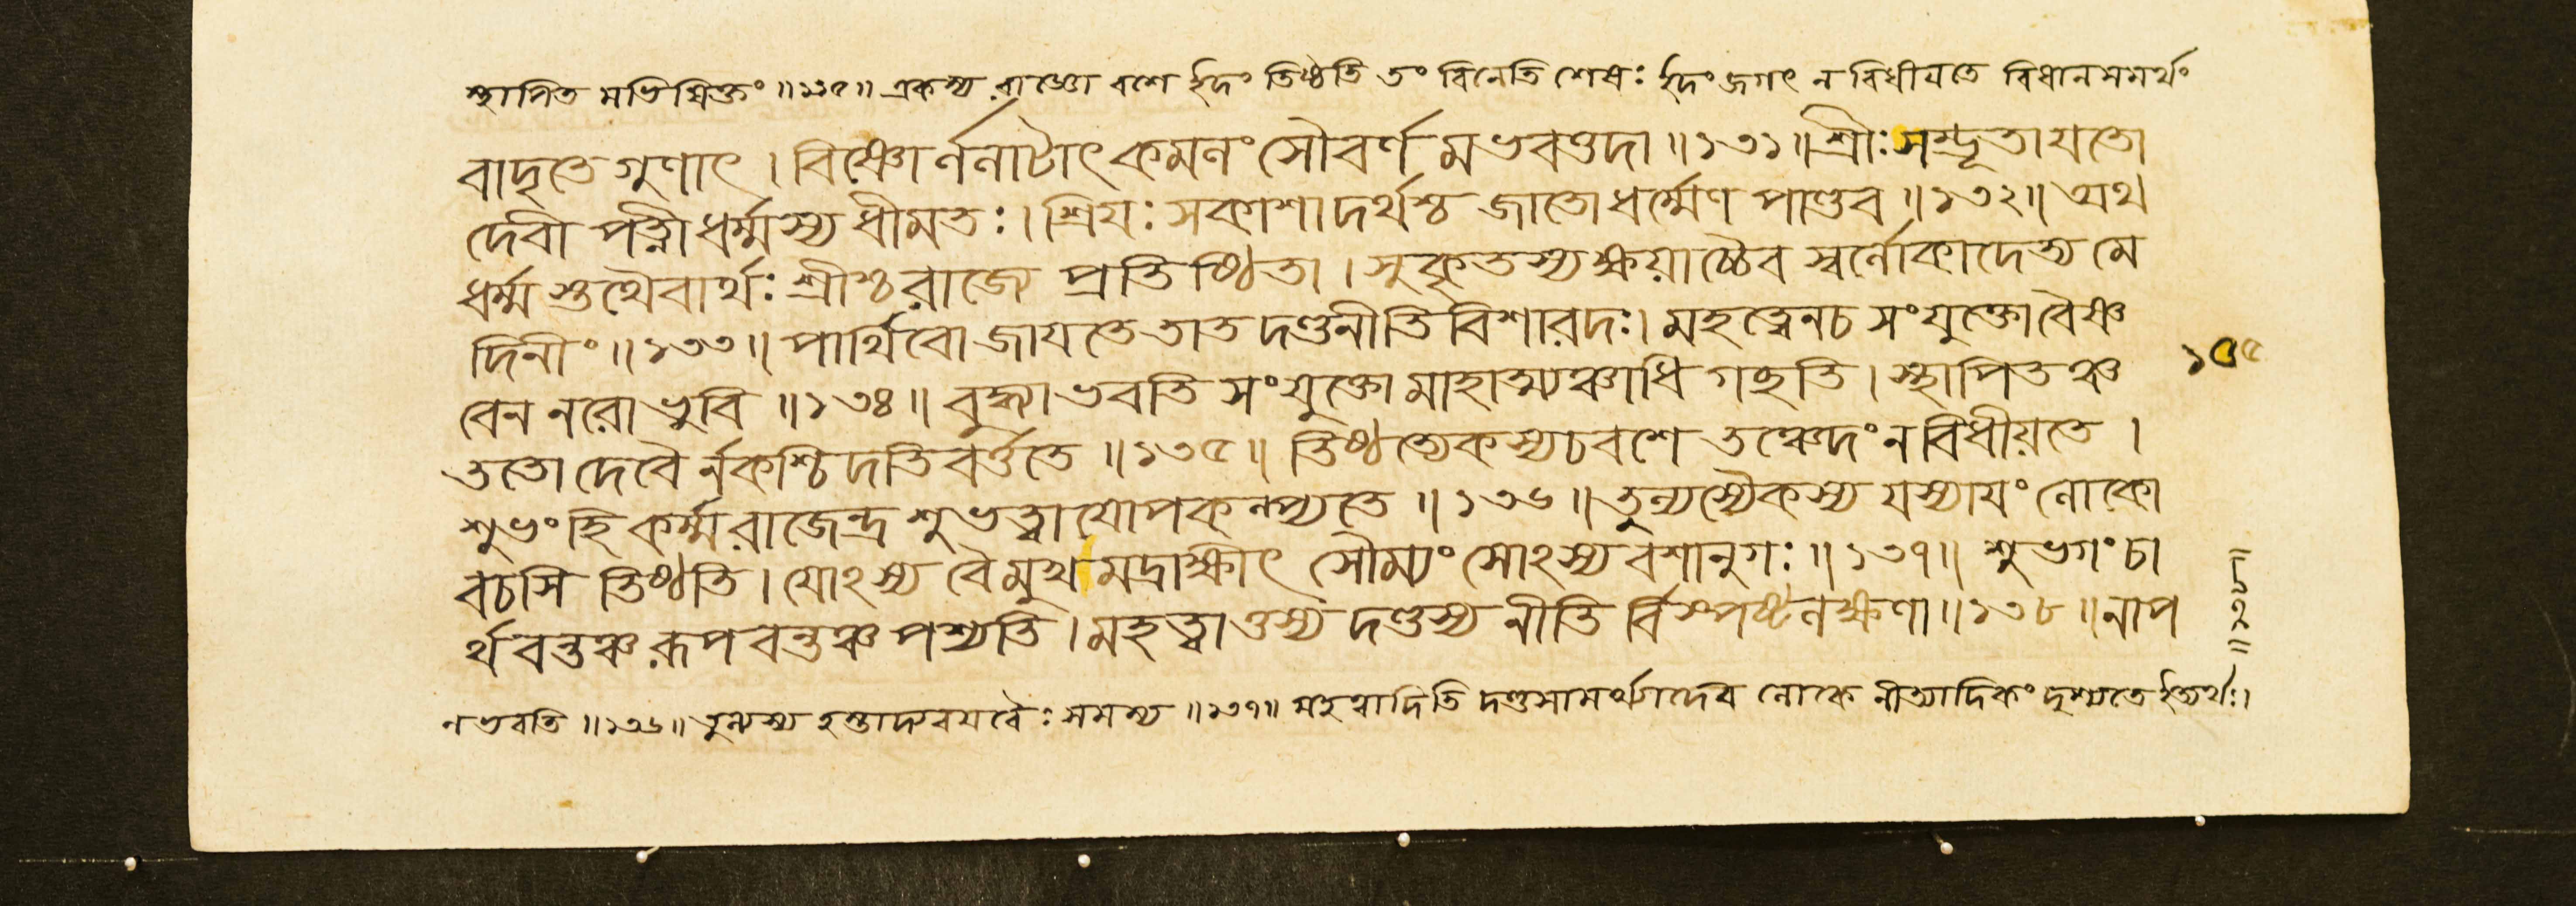 স্থাপিত মভিষিক্তং ॥১৩৫॥ একস্য রাজ্ঞো বশে ইদং তিষ্ঠতি তং বিনেতি শেষঃ ইদং জগৎ ন বিধীযতে বিধানসমর্থং
বাদৃতে গুণাৎ । বিষ্ণোর্ললাটাৎ কমলং সৌবর্ণ মভবত্তদা ॥১৩১॥ শ্রীঃ সম্ভূতা যতো
দেবী পত্নী ধর্ম্মস্য ধীমতঃ । শ্রিযঃ সকাশাদর্থশ্চ জাতো ধর্ম্মেণ পাণ্ডব ॥১৩২॥ অথ
ধর্ম্ম স্তথৈবার্থঃ শ্রীশ্চ রাজ্যে প্রতিষ্ঠিতা । সুকৃতস্য ক্ষয়াচ্চৈব স্বর্লোকাদেত্য মে
দিনীং ॥১৩৩॥ পার্থিবো জাযতে তাত দণ্ডনীতি বিশারদঃ । মহত্ত্বেনচ সংযুক্তো বৈষ্ণ
বেন নরো ভুবি ॥১৩৪॥ বুদ্ধ্যা ভবতি সংযুক্তো মাহাত্ম্যঞ্চাধি গছতি । স্থাপিতঞ্চ
১৫৫
ততো দেবৈ র্নকশ্চি দতিবর্ত্ততে ॥১৩৫॥ তিষ্ঠত্যেকস্যচ বশে তঞ্চেদং ন বিধীয়তে ।
শুভংহি কর্ম্ম রাজেন্দ্র শুভত্বা যোপকল্প্যতে ॥১৩৬॥ তুল্যস্যৈকস্য যস্যাযং লোকো
বচসি তিষ্ঠতি । যোঽস্য বৈ মুখমদ্রাক্ষীৎ সৌম্যং সোঽস্য বশানুগঃ ॥১৩৭॥ শুভগং চা
র্থবন্তঞ্চ রূপবন্তঞ্চ পশ্যতি । মহত্ত্বাত্তস্য দণ্ডস্য নীতি র্বিস্পষ্টলক্ষণা ॥১৩৮॥ নাপ
ন ভবতি ॥১৩৬॥ তুল্যস্য হস্তাদ্যবযবৈঃ সমস্য ॥১৩৭॥ মহত্বাদিতি দণ্ডসামর্থ্যাদেব লোকে নীত্যাদিকং দৃশ্যতে ইত্যর্থঃ।